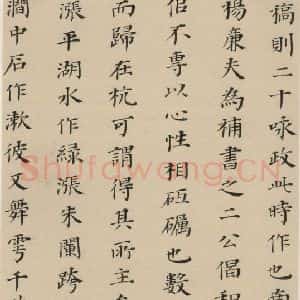 稿則二十咏政此時作也
楊廉夫為補書之二公倡和
不專以心性相砥礪也數
而歸在杭可謂得其所主
漲平湖水作緑漲朱闌跨
澗中石作漱彼又舞雩千
Shufawang.CN